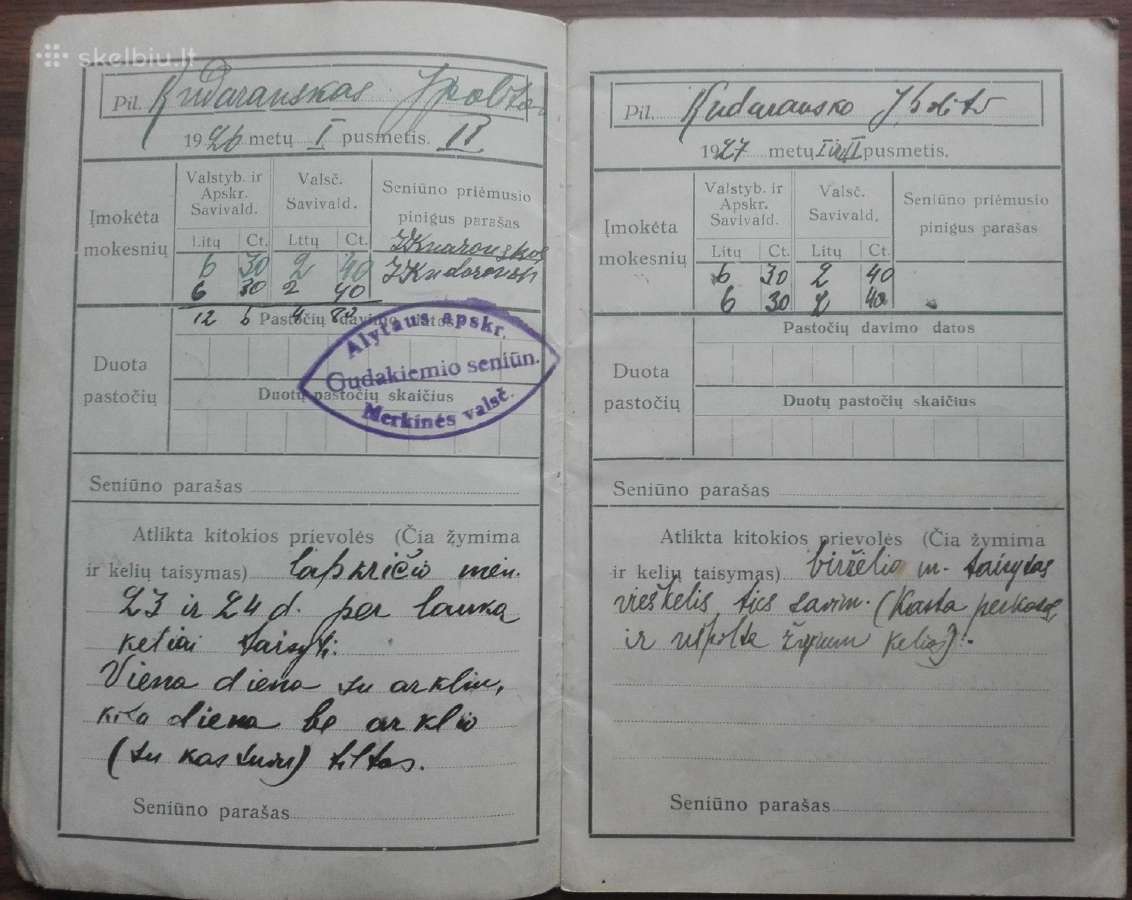 skelbiu.lt
Pil. Kudarauskas
1926 metų I pusmetis. II
Įmokėta mokesnių
Valstyb. ir Apskr. Savivald.
Valsč. Savivald.
Seniūno priėmusio pinigus parašas
Litų Ct. Lttų Ct.
6 30 2 40
6 30 2 40
12 6 4 80
Duota pastočių
Pastočių davimo datos
Duotų pastočių skaičius
Alytaus apskr.
Gudakiemio seniūn.
Merkinės valsč.
Seniūno parašas
Atlikta kitokios prievolės (Čia žymima
ir kelių taisymas) lapkričio mėn.
23 ir 24 d. per lauka
keliai taisyti.
Viena diena su arkliu,
kita diena be arklio
(su kastuvu) tiltas.
Seniūno parašas
Pil. Kudarausko
1927 metų I ir II pusmetis.
Įmokėta mokesnių
Valstyb. ir Apskr. Savivald.
Valsč. Savivald.
Seniūno priėmusio pinigus parašas
Litų Ct. Litų Ct.
6 30 2 40
6 30 2 40
Duota pastočių
Pastočių davimo datos
Duotų pastočių skaičius
Seniūno parašas
Atlikta kitokios prievolės (Čia žymima
ir kelių taisymas) birželio m. taisytas
vieškelis ties savim.
ir kelias).
Seniūno parašas